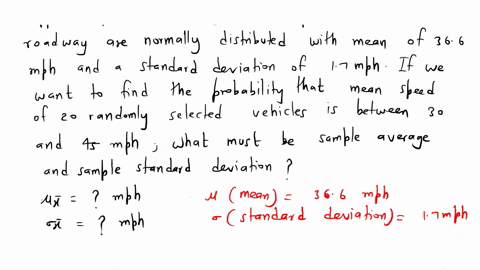 roadway are normally distributed with mean of 36.6
mph and a standard deviation of 1.7 mph. If we
want to find the probability that mean speed
of 20 randomly selected vehicles is between 30
and 45 mph, what must be sample average
and sample standard deviation ?
μx̄ = ? mph
σx̄ = ? mph
μ (mean) = 36.6 mph
σ (standard deviation) = 1.7 mph